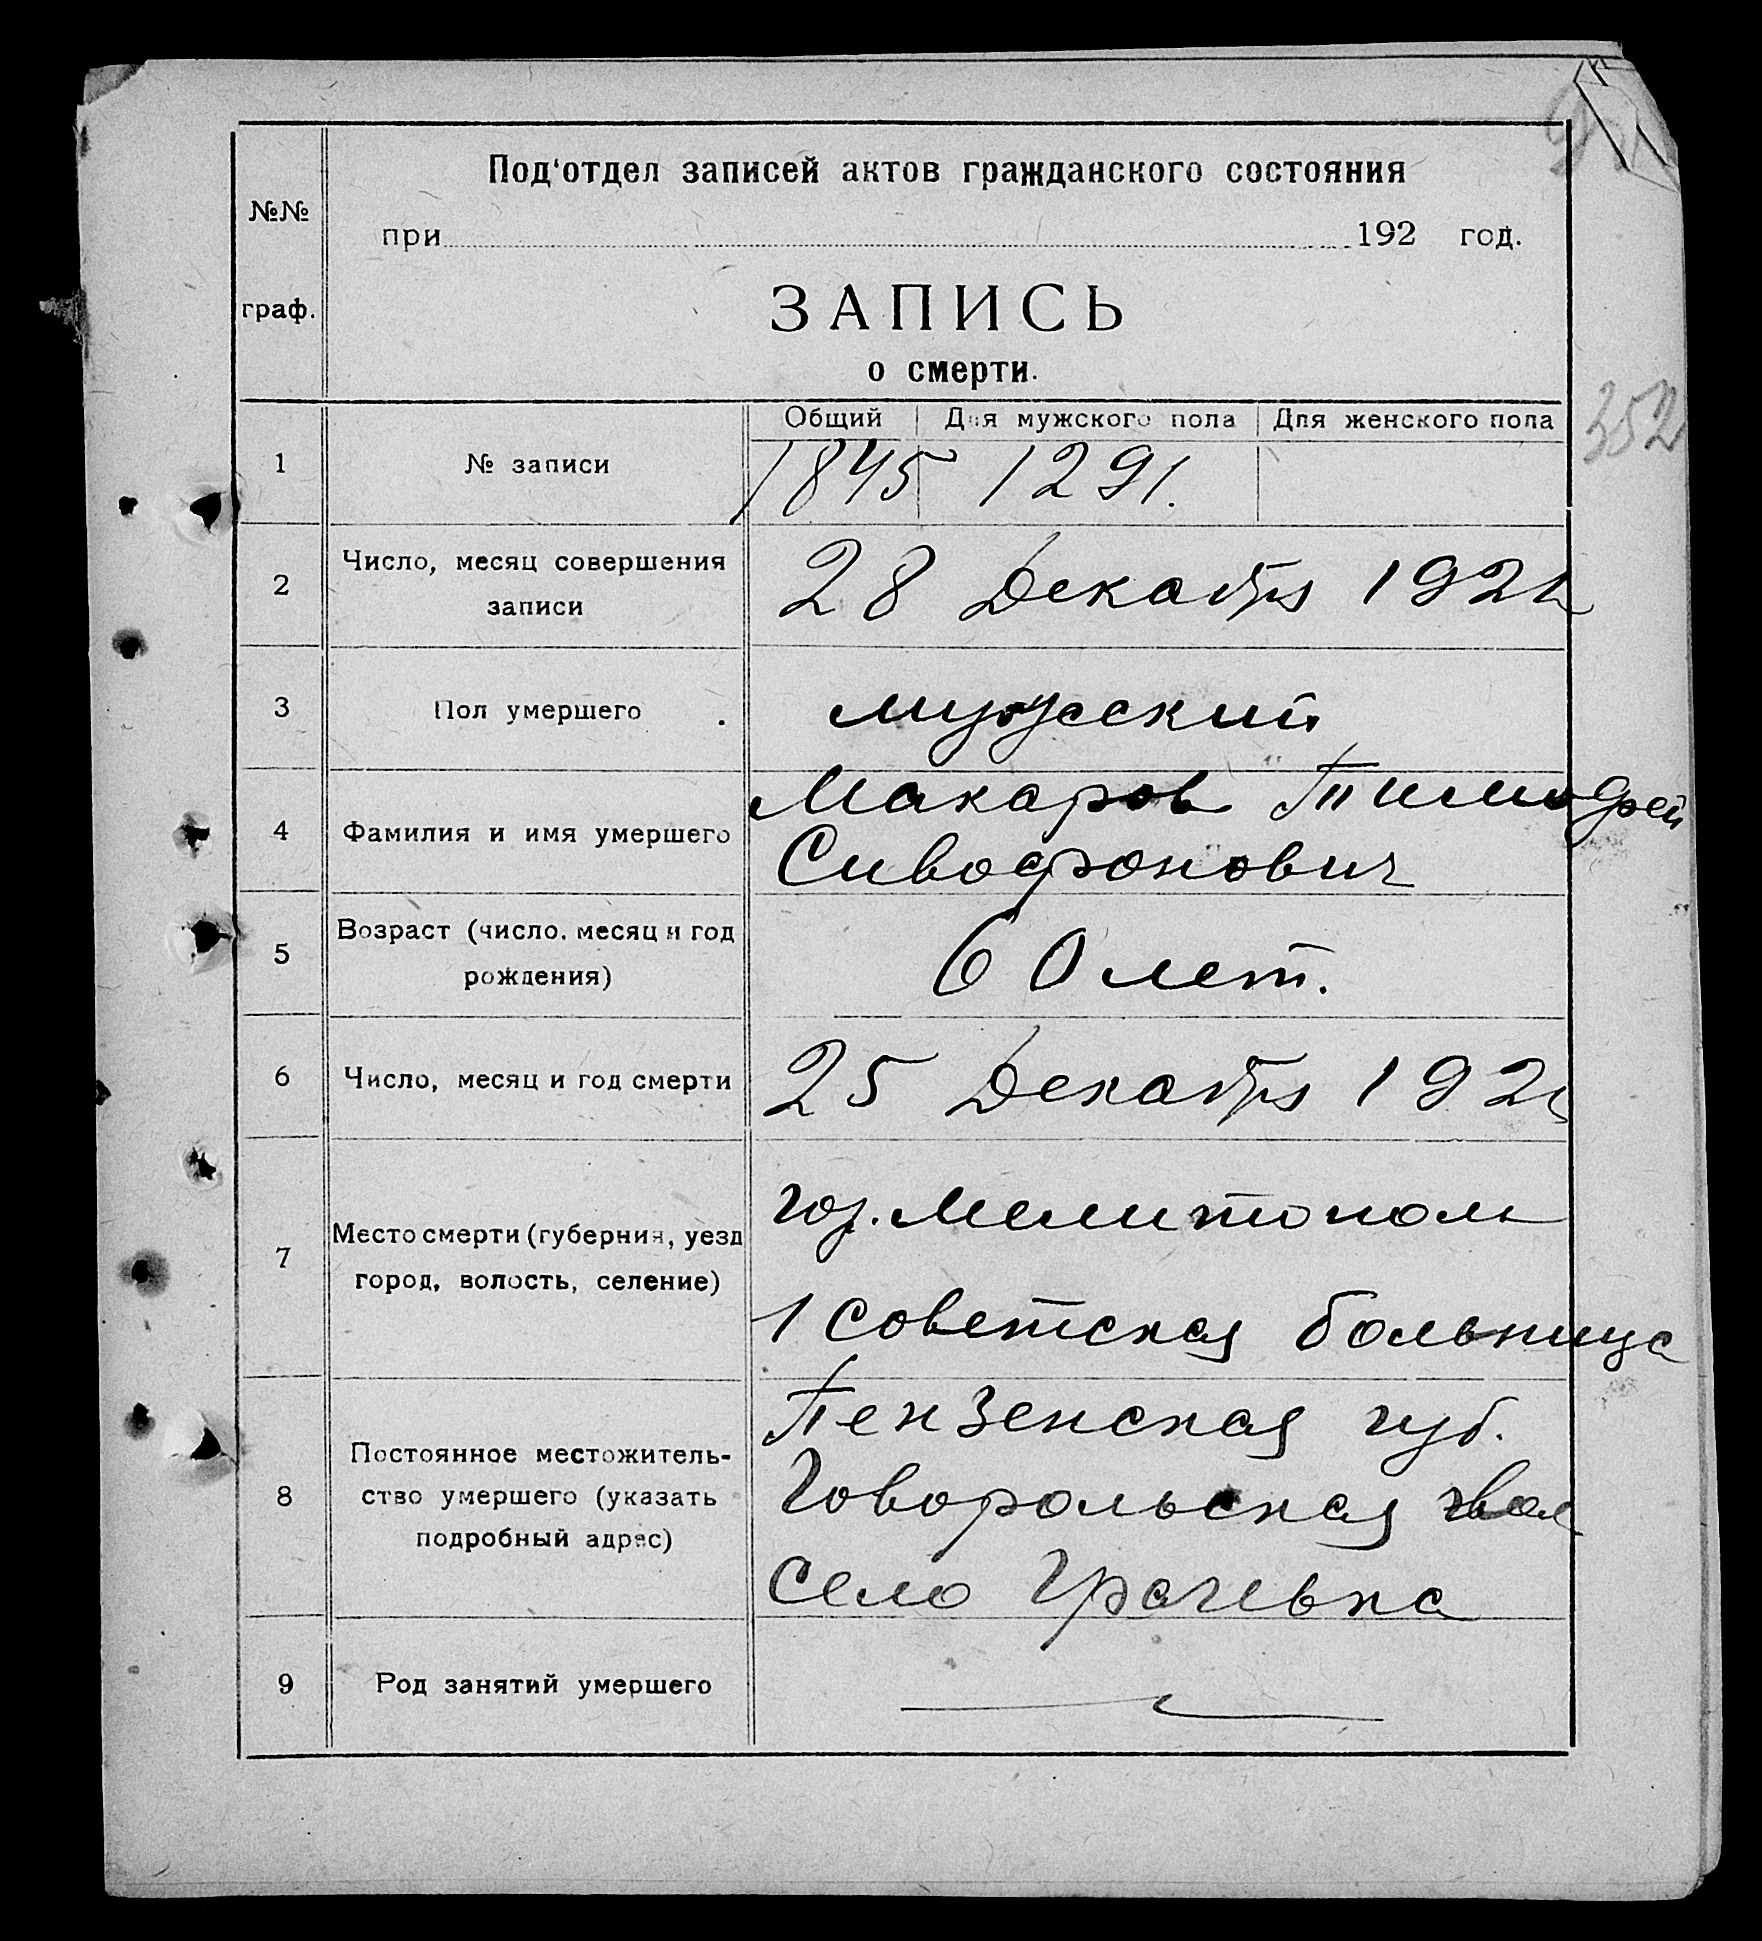 Под'отдел записей актов гражданского состояния
№№
при 192 год.
граф.
ЗАПИСЬ
о смерти.
352
Общий Для мужского пола Для женского пола
1 № записи 1845 1291.
2 Число, месяц совершения записи 28 Декабря
3 Пол умершего мужеский
4 Фамилия и имя умершего Макаров Тимофей
Сивофонович
5 Возраст (число, месяц и год рождения) 60 лет.
6 Число, месяц и год смерти 25 Декабря
7 Место смерти (губерния, уезд город, волость, селение) гор. Мелитополь
1 Советская больница
8 Постоянное местожительство умершего (указать подробный адрес) Пензенская губ.
Говорольская вол
Село Грачевка
9 Род занятий умершего